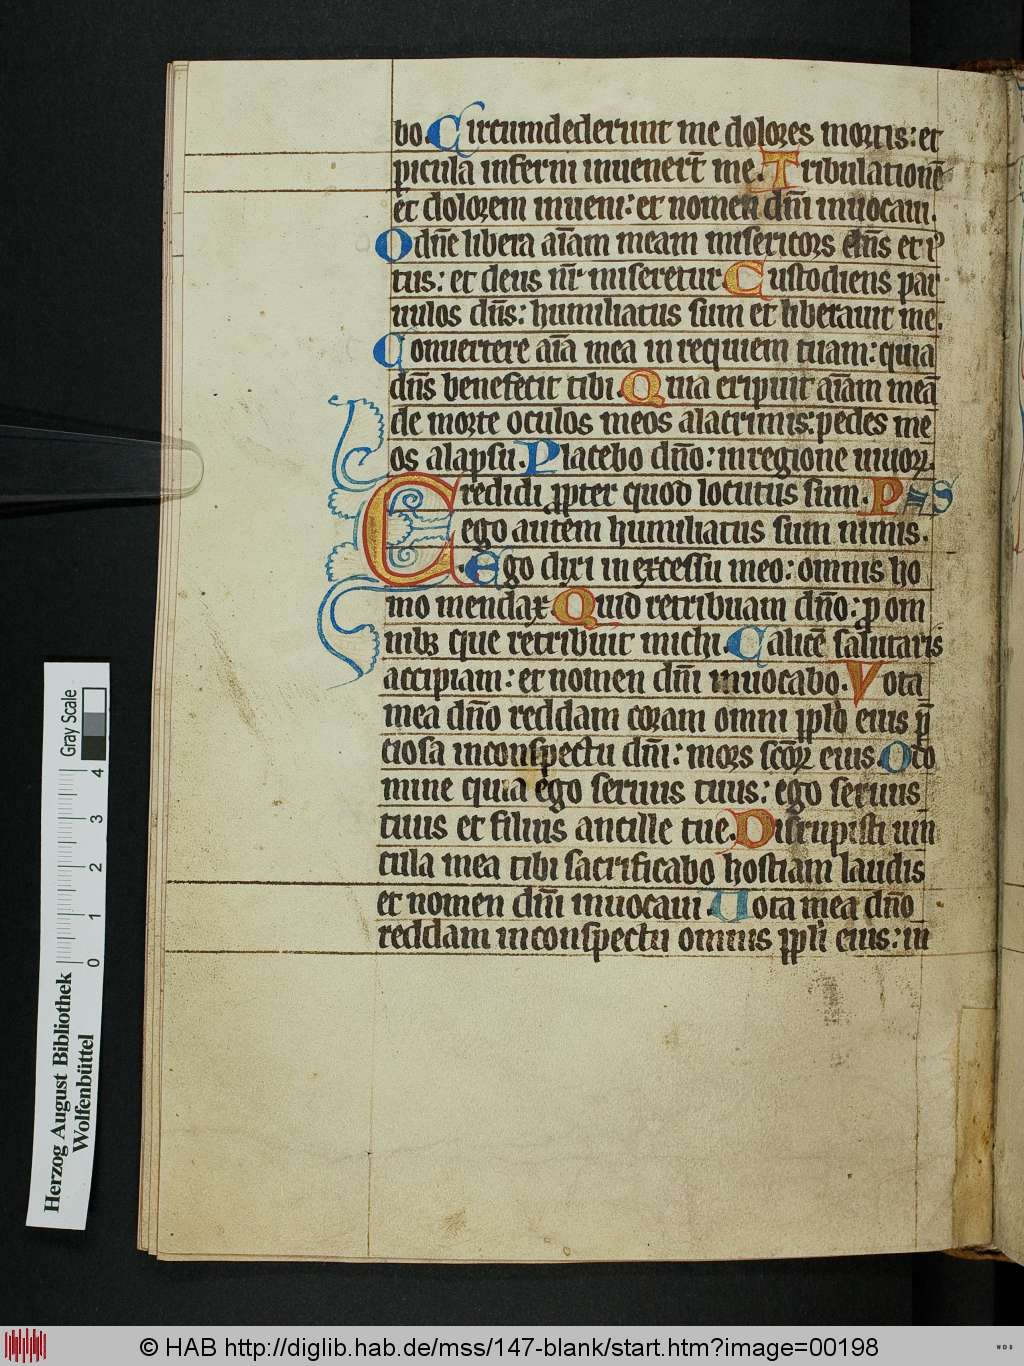 bo. Circumdederunt me dolores mortis: et
picula inferni inuenert̄ me. Tribulationē
et dolorem inueni: et nomen dn̄i inuocaui.
O dn̄e libera aīam meam misericors dn̄s et i
tus: et deus nr̄ miseretur Custodiens par
uulos dn̄s: humiliatus sum et liberauit me.
Conuertere aīa mea in requiem tuam: quia
dn̄s benefecit tibi. Quia eripuit aīam meā
de morte oculos meos alacrimis: pedes me
os alapsu. Placebo dn̄o: in regione uiuoꝝ.
Credidi ꝓpter quod locutus sum. PS
ego autem humiliatus sum nimis.
Ego dixi in excessu meo: omnis ho
mo mendax. Quid retribuam dn̄o: ꝓ om
nibꝫ que retribuit michi. Calicē salutaris
accipiam: et nomen dn̄i inuocabo. Vota
mea dn̄o reddam coram omni ppl̄o eius p̄
ciosa in conspectu dn̄i: mors sc̄oꝝ eius. O do
mine quia ego seruus tuus: ego seruus
tuus et filius ancille tue. Disrupisti uin
cula mea tibi sacrificabo hostiam laudis
et nomen dn̄i inuocaui. Uota mea dn̄o
reddam in conspectu omnis ppl̄i eius: in
Herzog August Bibliothek
Wolfenbüttel
0 1 2 3 4
Gray Scale
© HAB http://diglib.hab.de/mss/147-blank/start.htm?image=00198
HAB